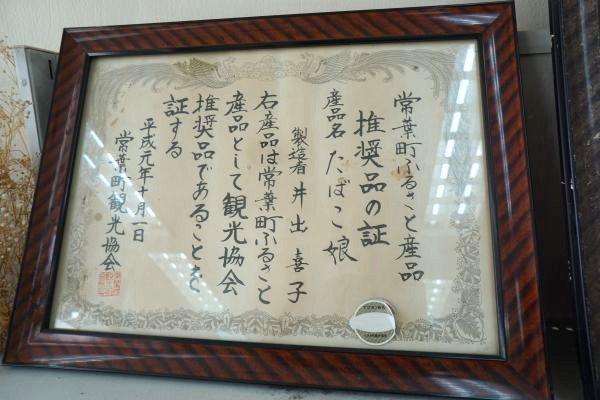 常葉町ふるさと産品
推奨品の証
産品名 たばこ娘
製造者 井出喜子
右産品は常葉町ふるさと
産品として観光協会
推奨品であることを
証する
平成元年十月一日
常葉町観光協会